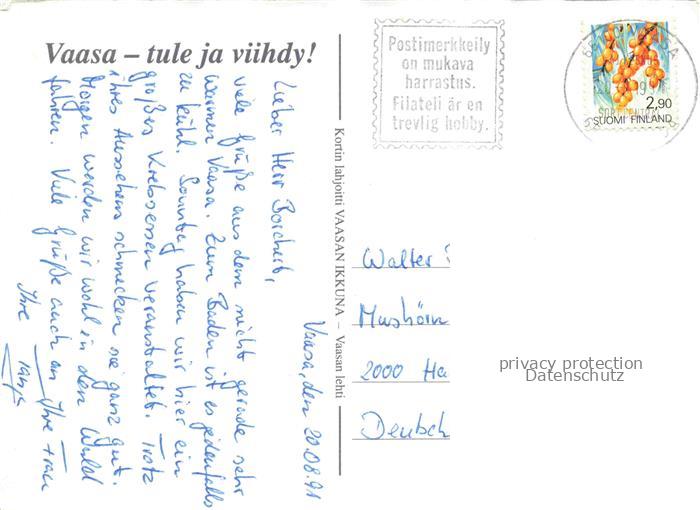 Vaasa – tule ja viihdy!
Postimerkkeily
on mukava
harrastus.
Filateli är en
trevlig hobby.
2,90
SUOMI FINLAND
Kortin lahjoitti VAASAN IKKUNA – Vaasan lehti
Vaasa, den 20.08.91
Lieber Herr Borchert,
viele Grüße aus dem nicht gerade sehr
warmen Vaasa. Zum Baden ist es jedenfalls
zu kühl. Sonntag haben wir hier ein
großes Krebsessen veranstaltet. Trotz
ihres Aussehens schmecken sie ganz gut.
Morgen werden wir wohl in den Wald
fahren. Viele Grüße auch an Ihre Frau
Ihre
Walter
Mushörn
2000 Ha
Deutsch
privacy protection
Datenschutz